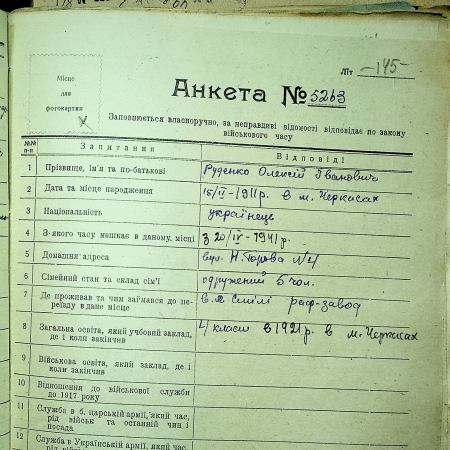 Літ —145—
Місце
для
фотокартки
Анкета № 5263
Заповнюється власноручно, за неправдиві відомості відповідає по закону
військового часу
№№ п-п Запитання Відповіді
1 Прізвище, ім'я та по-батькові Руденко Олексій Іванович
2 Дата та місце народження 15/II-1911р. в м. Черкасах
3 Національність українець
4 З-якого часу мешкає в даному, місці з 20/IV-1941р.
5 Домашня адреса вул. №4
6 Сімейний стан та склад сім'ї одружений 5 чол.
7 Де проживав та чим займався до пе-
реїзду в дане місце в м. Смілі раф-завод
8 Загальна освіта, який учбовий заклад,
де і коли закінчив 4 класи в 1921р. в м. Черкасах
9 Військова освіта, який заклад, де і
коли закінчив
10 Відношення до військової служби
до 1917 року
11 Служба в б. царській армії, який час,
рід військ та останній чин і
посада
12 Служба в Українській армії, який час,